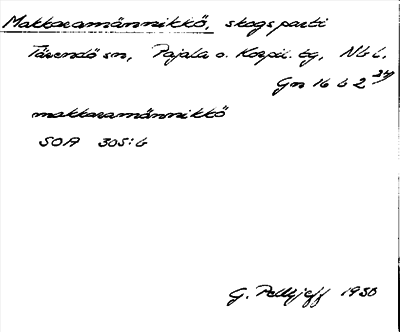 Makkaramännikkö, skogsparti
Tärendö sn, Pajala o. Korpil. tg, Nb L.
Gm 16 b 2 34g
makkaramännikkö
SOA 305:6
G. Pellijeff 1950